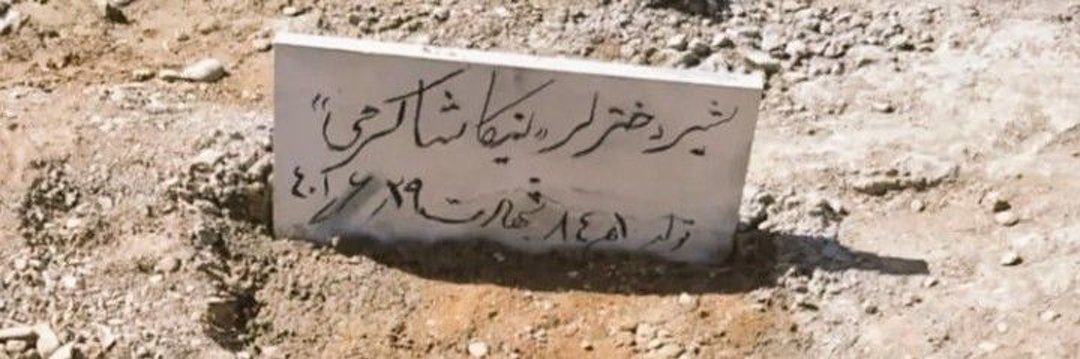 شیر دختر لر «نیکا شاکرمی»
تولد شهادت ۲۹/۶/۴۰۱